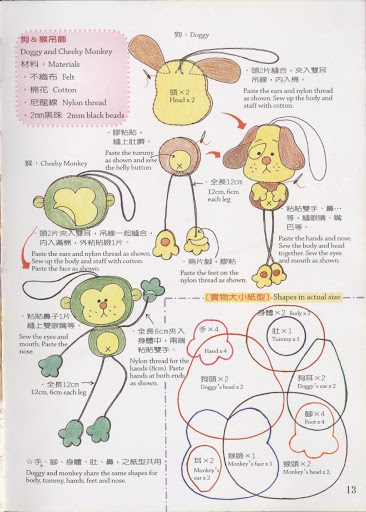 狗&猴吊飾
Doggy and Cheeky Monkey
材料：Materials
·不織布 Felt
·棉花 Cotton
·尼龍線 Nylon thread
2mm黑珠 2mm black beads
狗：Doggy
頭×2
Head x 2
·頭2片縫合，夾入雙耳
吊線，內入棉。
Paste the ears and nylon thread
as shown. Sew up the body and
staff with cotton.
·膠粘貼，
縫上肚臍。
Paste the tummy
as shown and sew
the belly button.
·全長12cm
12cm, 6cm
each leg
·粘貼雙手、鼻…
等，縫眼睛、嘴
巴等。
Paste the hands and nose.
Sew the body and head
together. Sew the eyes
and mouth as shown.
·兩片腳，膠粘
Paste the feet on the
nylon thread as shown.
猴：Cheeky Monkey
·頭2片夾入雙耳，吊線一起縫合，
內入滿棉，外粘貼臉1片。
Paste the ears and nylon thread as shown.
Sew up the body and staff with cotton.
Paste the face as shown.
·粘貼鼻子1片
縫上雙眼嘴等。
Sew the eyes and
mouth. Paste the
nose.
·全長8cm夾入
身體中，兩端
粘貼雙手。
Nylon thread for the
hands (8cm). Paste
hands at both ends
as shown.
·全長12cm
12cm, 6cm each leg
☆手、腳、身體、肚、鼻，之紙型共用
Doggy and monkey share the same shapes for
body, tummy, hands, feet and nose.
[實物大小紙型]-Shapes in actual size
身體×2 Body x 2
手×4
Hand x 4
肚×1
Tummy x 1
狗頭×2
Doggy's head x 2
狗耳×2
Doggy's ear x 2
腳×4
Foot x 4
耳×2
Monkey's
ear x 2
猴臉×1
Monkey's face x 1
猴頭×2
Monkey's head x 2
13